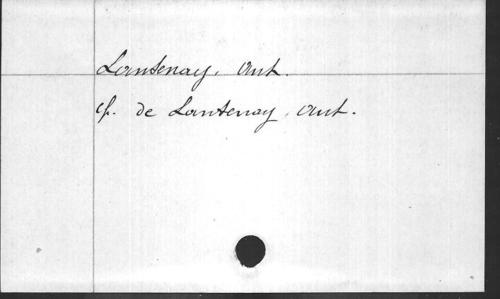 Lantenay, Ant.
cf. de Lantenay, Ant.